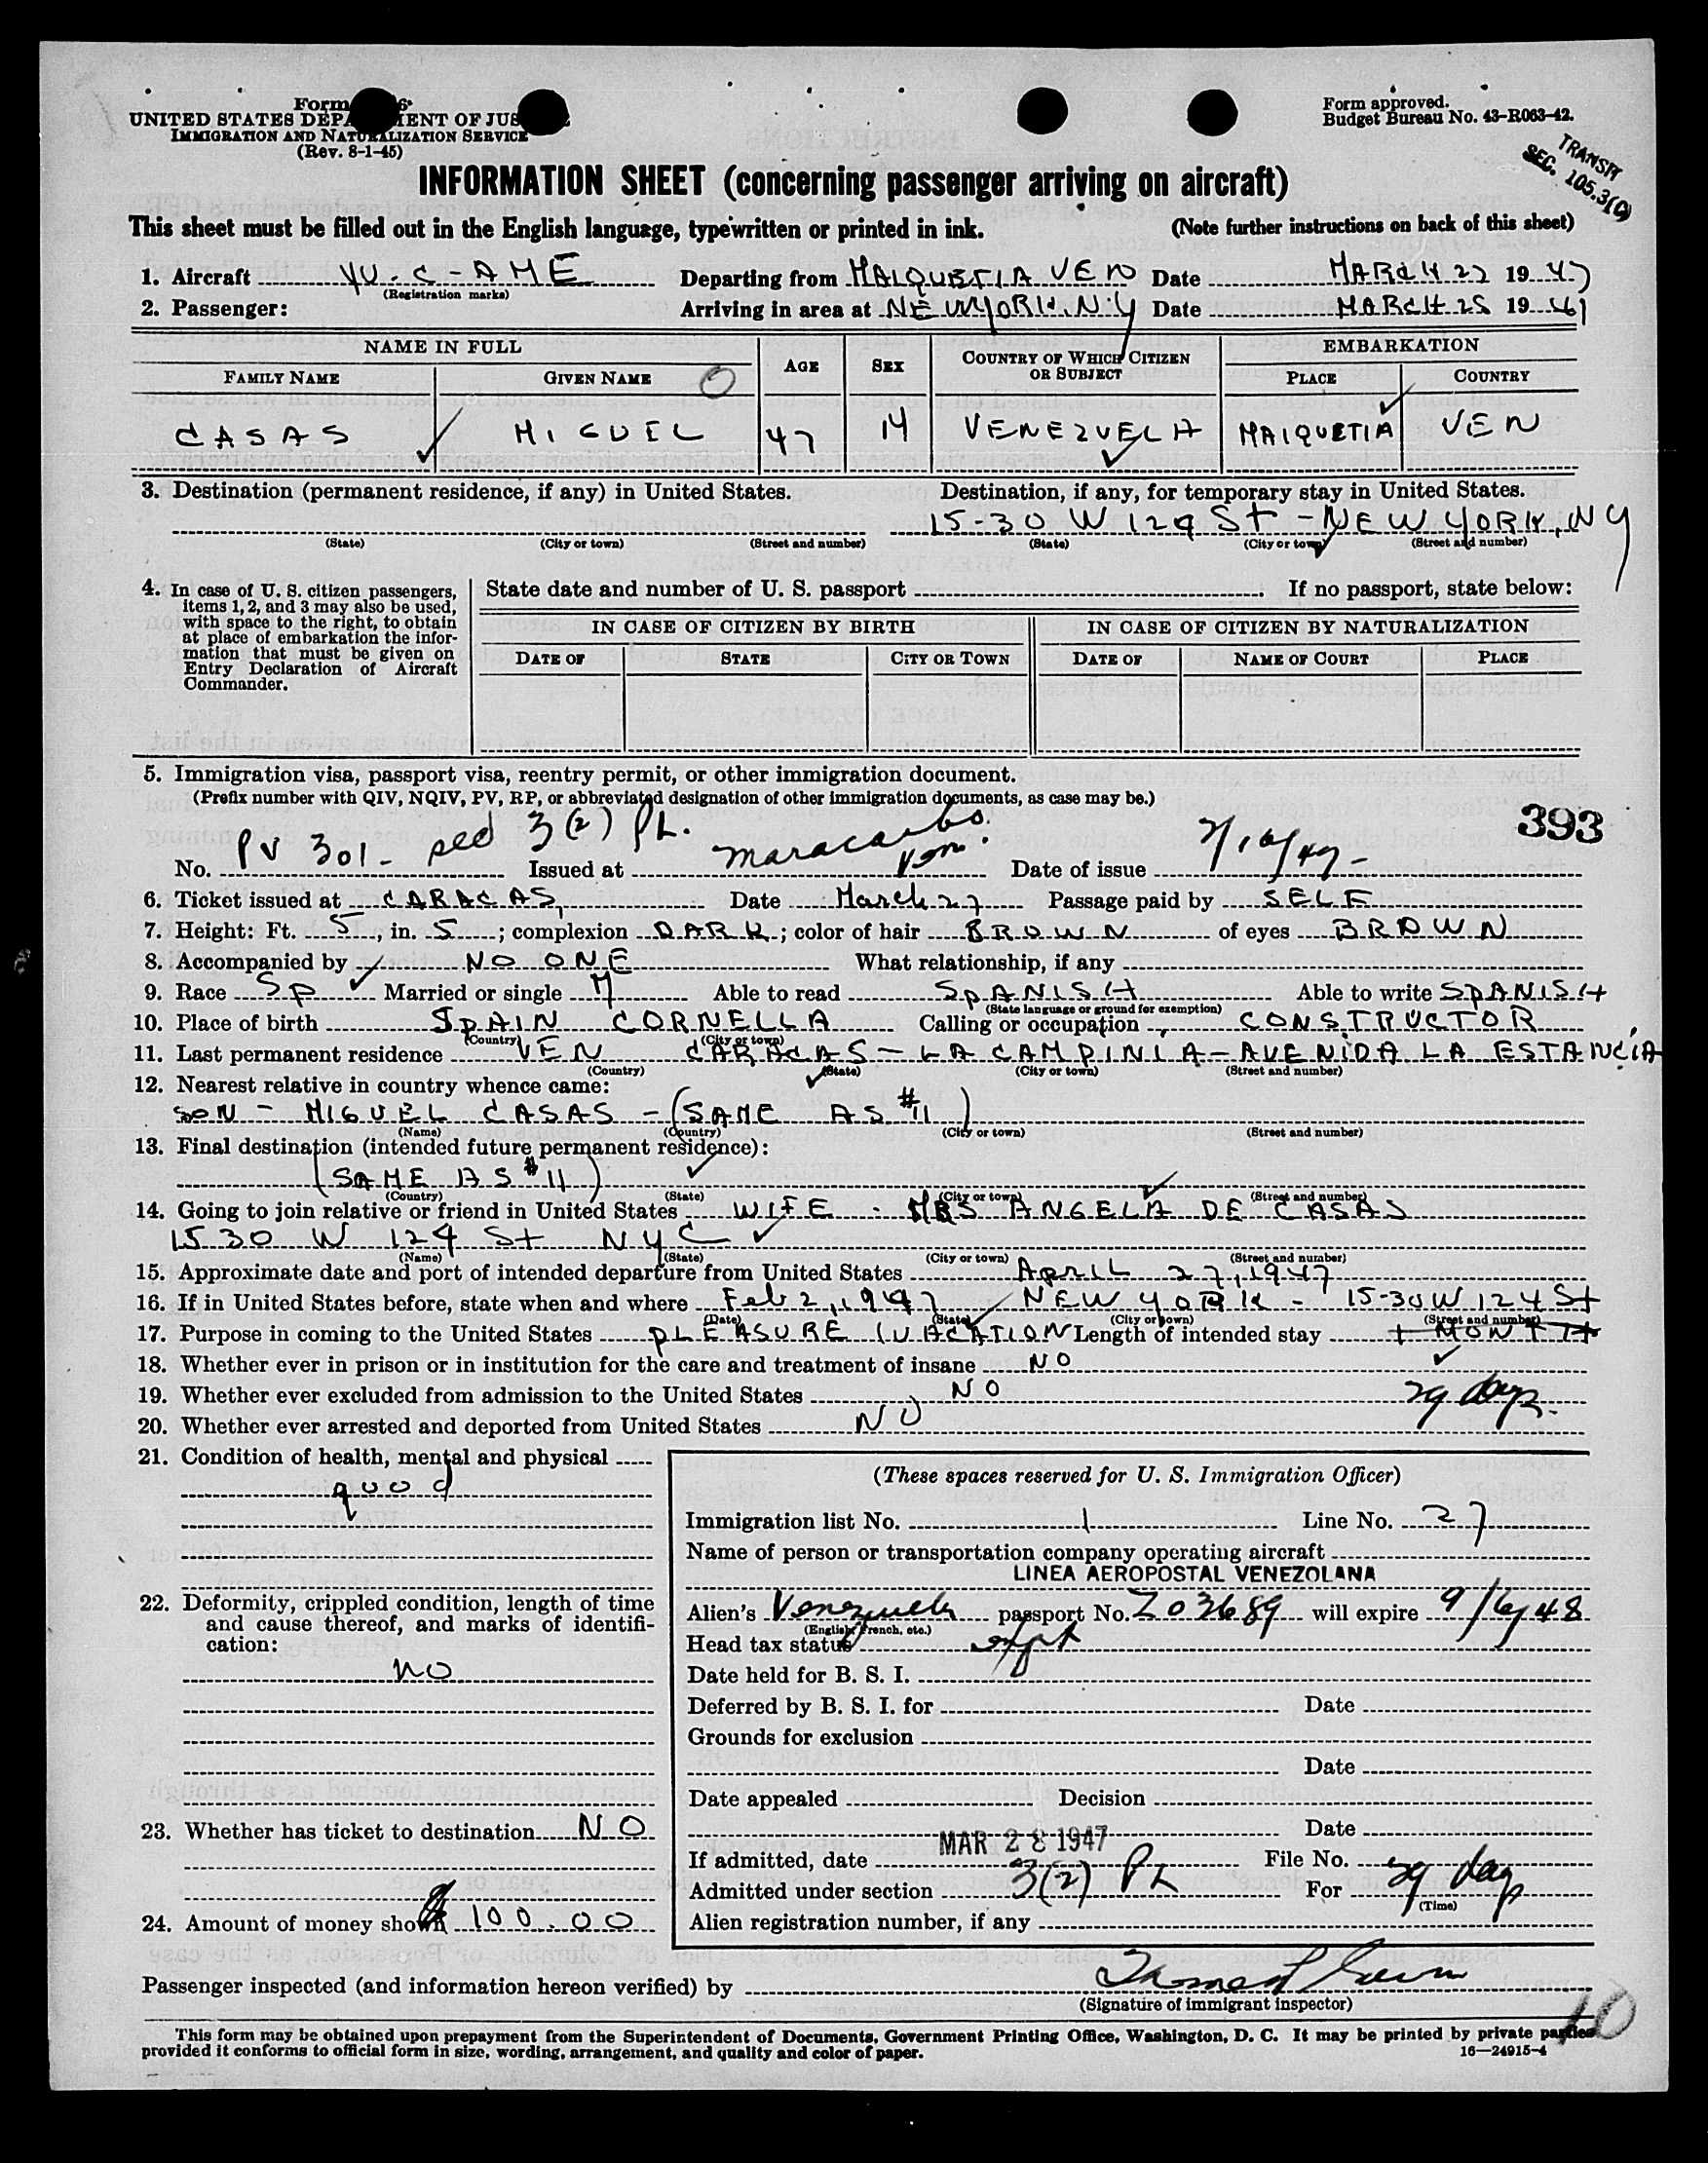 Form
UNITED STATES DEPARTMENT OF JUSTICE
IMMIGRATION AND NATURALIZATION SERVICE
(Rev. 8-1-45)
Form approved.
Budget Bureau No. 43-R063-42.
TRANSIT
SEC. 105.3(C)
INFORMATION SHEET (concerning passenger arriving on aircraft)
This sheet must be filled out in the English language, typewritten or printed in ink. (Note further instructions on back of this sheet)
1. Aircraft YV-C-AME Departing from MAIQUETIA VEN Date MARCH 27 1947
(Registration marks)
2. Passenger: Arriving in area at NEW YORK, NY Date MARCH 28 19
NAME IN FULL AGE SEX COUNTRY OF WHICH CITIZEN OR SUBJECT EMBARKATION
FAMILY NAME GIVEN NAME PLACE COUNTRY
CASAS MIGUEL 47 M VENEZUELA MAIQUETIA VEN
3. Destination (permanent residence, if any) in United States. Destination, if any, for temporary stay in United States.
15-30 W 124 St - NEW YORK, NY
(State) (City or town) (Street and number) (State) (City or town) (Street and number)
4. In case of U. S. citizen passengers, items 1, 2, and 3 may also be used, with space to the right, to obtain at place of embarkation the information that must be given on Entry Declaration of Aircraft Commander.
State date and number of U. S. passport If no passport, state below:
IN CASE OF CITIZEN BY BIRTH IN CASE OF CITIZEN BY NATURALIZATION
DATE OF STATE CITY OR TOWN DATE OF NAME OF COURT PLACE
5. Immigration visa, passport visa, reentry permit, or other immigration document.
(Prefix number with QIV, NQIV, PV, RP, or abbreviated designation of other immigration documents, as case may be.)
393
No. PV 301 - sec 3(2) PL. Issued at Maracaibo Ven. Date of issue
6. Ticket issued at CARACAS, Date March 27 Passage paid by SELF
7. Height: Ft. 5, in. 5; complexion DARK; color of hair BROWN of eyes BROWN
8. Accompanied by NO ONE What relationship, if any
9. Race SP Married or single M Able to read SPANISH Able to write SPANISH
(State language or ground for exemption)
10. Place of birth SPAIN CORNELLA Calling or occupation CONSTRUCTOR
(Country) (City or town)
11. Last permanent residence VEN CARACAS - LA CAMPINIA - AVENIDA LA ESTANCIA
(Country) (State) (City or town) (Street and number)
12. Nearest relative in country whence came:
SON - MIGUEL CASAS - (SAME AS #11)
(Name) (Country) (City or town) (Street and number)
13. Final destination (intended future permanent residence):
(SAME AS #11)
(Country) (State) (City or town) (Street and number)
14. Going to join relative or friend in United States WIFE - MRS ANGELA DE CASAS
1530 W 124 St NYC
(Name) (State) (City or town) (Street and number)
15. Approximate date and port of intended departure from United States APRIL 27, 1947
16. If in United States before, state when and where Feb 2, 1947 NEW YORK - 15-30 W 124 St
(Date) (State) (City or town) (Street and number)
17. Purpose in coming to the United States PLEASURE (VACATION Length of intended stay 1 MONTH
18. Whether ever in prison or in institution for the care and treatment of insane NO
19. Whether ever excluded from admission to the United States NO
29 days.
20. Whether ever arrested and deported from United States NO
21. Condition of health, mental and physical
good
(These spaces reserved for U. S. Immigration Officer)
Immigration list No. 1 Line No. 27
Name of person or transportation company operating aircraft
LINEA AEROPOSTAL VENEZOLANA
22. Deformity, crippled condition, length of time and cause thereof, and marks of identification:
NO
Alien's Venezuela passport No. 203689 will expire 9/6/48
(English, French, etc.)
Head tax status
Date held for B. S. I.
Deferred by B. S. I. for Date
Grounds for exclusion
Date
Date appealed Decision
23. Whether has ticket to destination NO
Date
MAR 28 1947
If admitted, date File No.
Admitted under section 3(2) PL For 29 days
(Time)
24. Amount of money shown $100.00
Alien registration number, if any
Passenger inspected (and information hereon verified) by
(Signature of immigrant inspector)
10
This form may be obtained upon prepayment from the Superintendent of Documents, Government Printing Office, Washington, D. C. It may be printed by private parties
provided it conforms to official form in size, wording, arrangement, and quality and color of paper.
16—24915-4